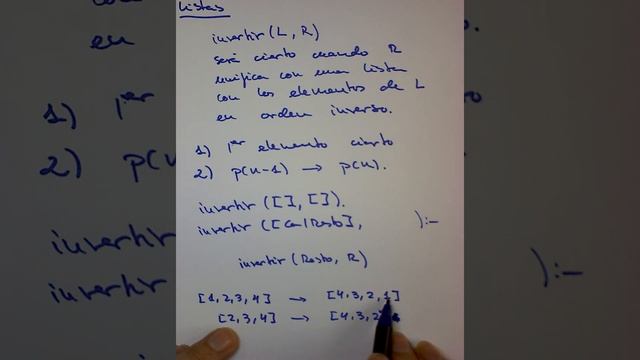 Listas
invertir(L, R)
será cierto cuando R
unifica con una lista
con los elementos de L
en orden inverso.
1) 1er elemento cierto
2) p(n-1) → p(n).
invertir([], []).
invertir([Cab|Resto], ):-
invertir(Resto, R)
[1,2,3,4] → [4,3,2,1]
[2,3,4] → [4,3,2